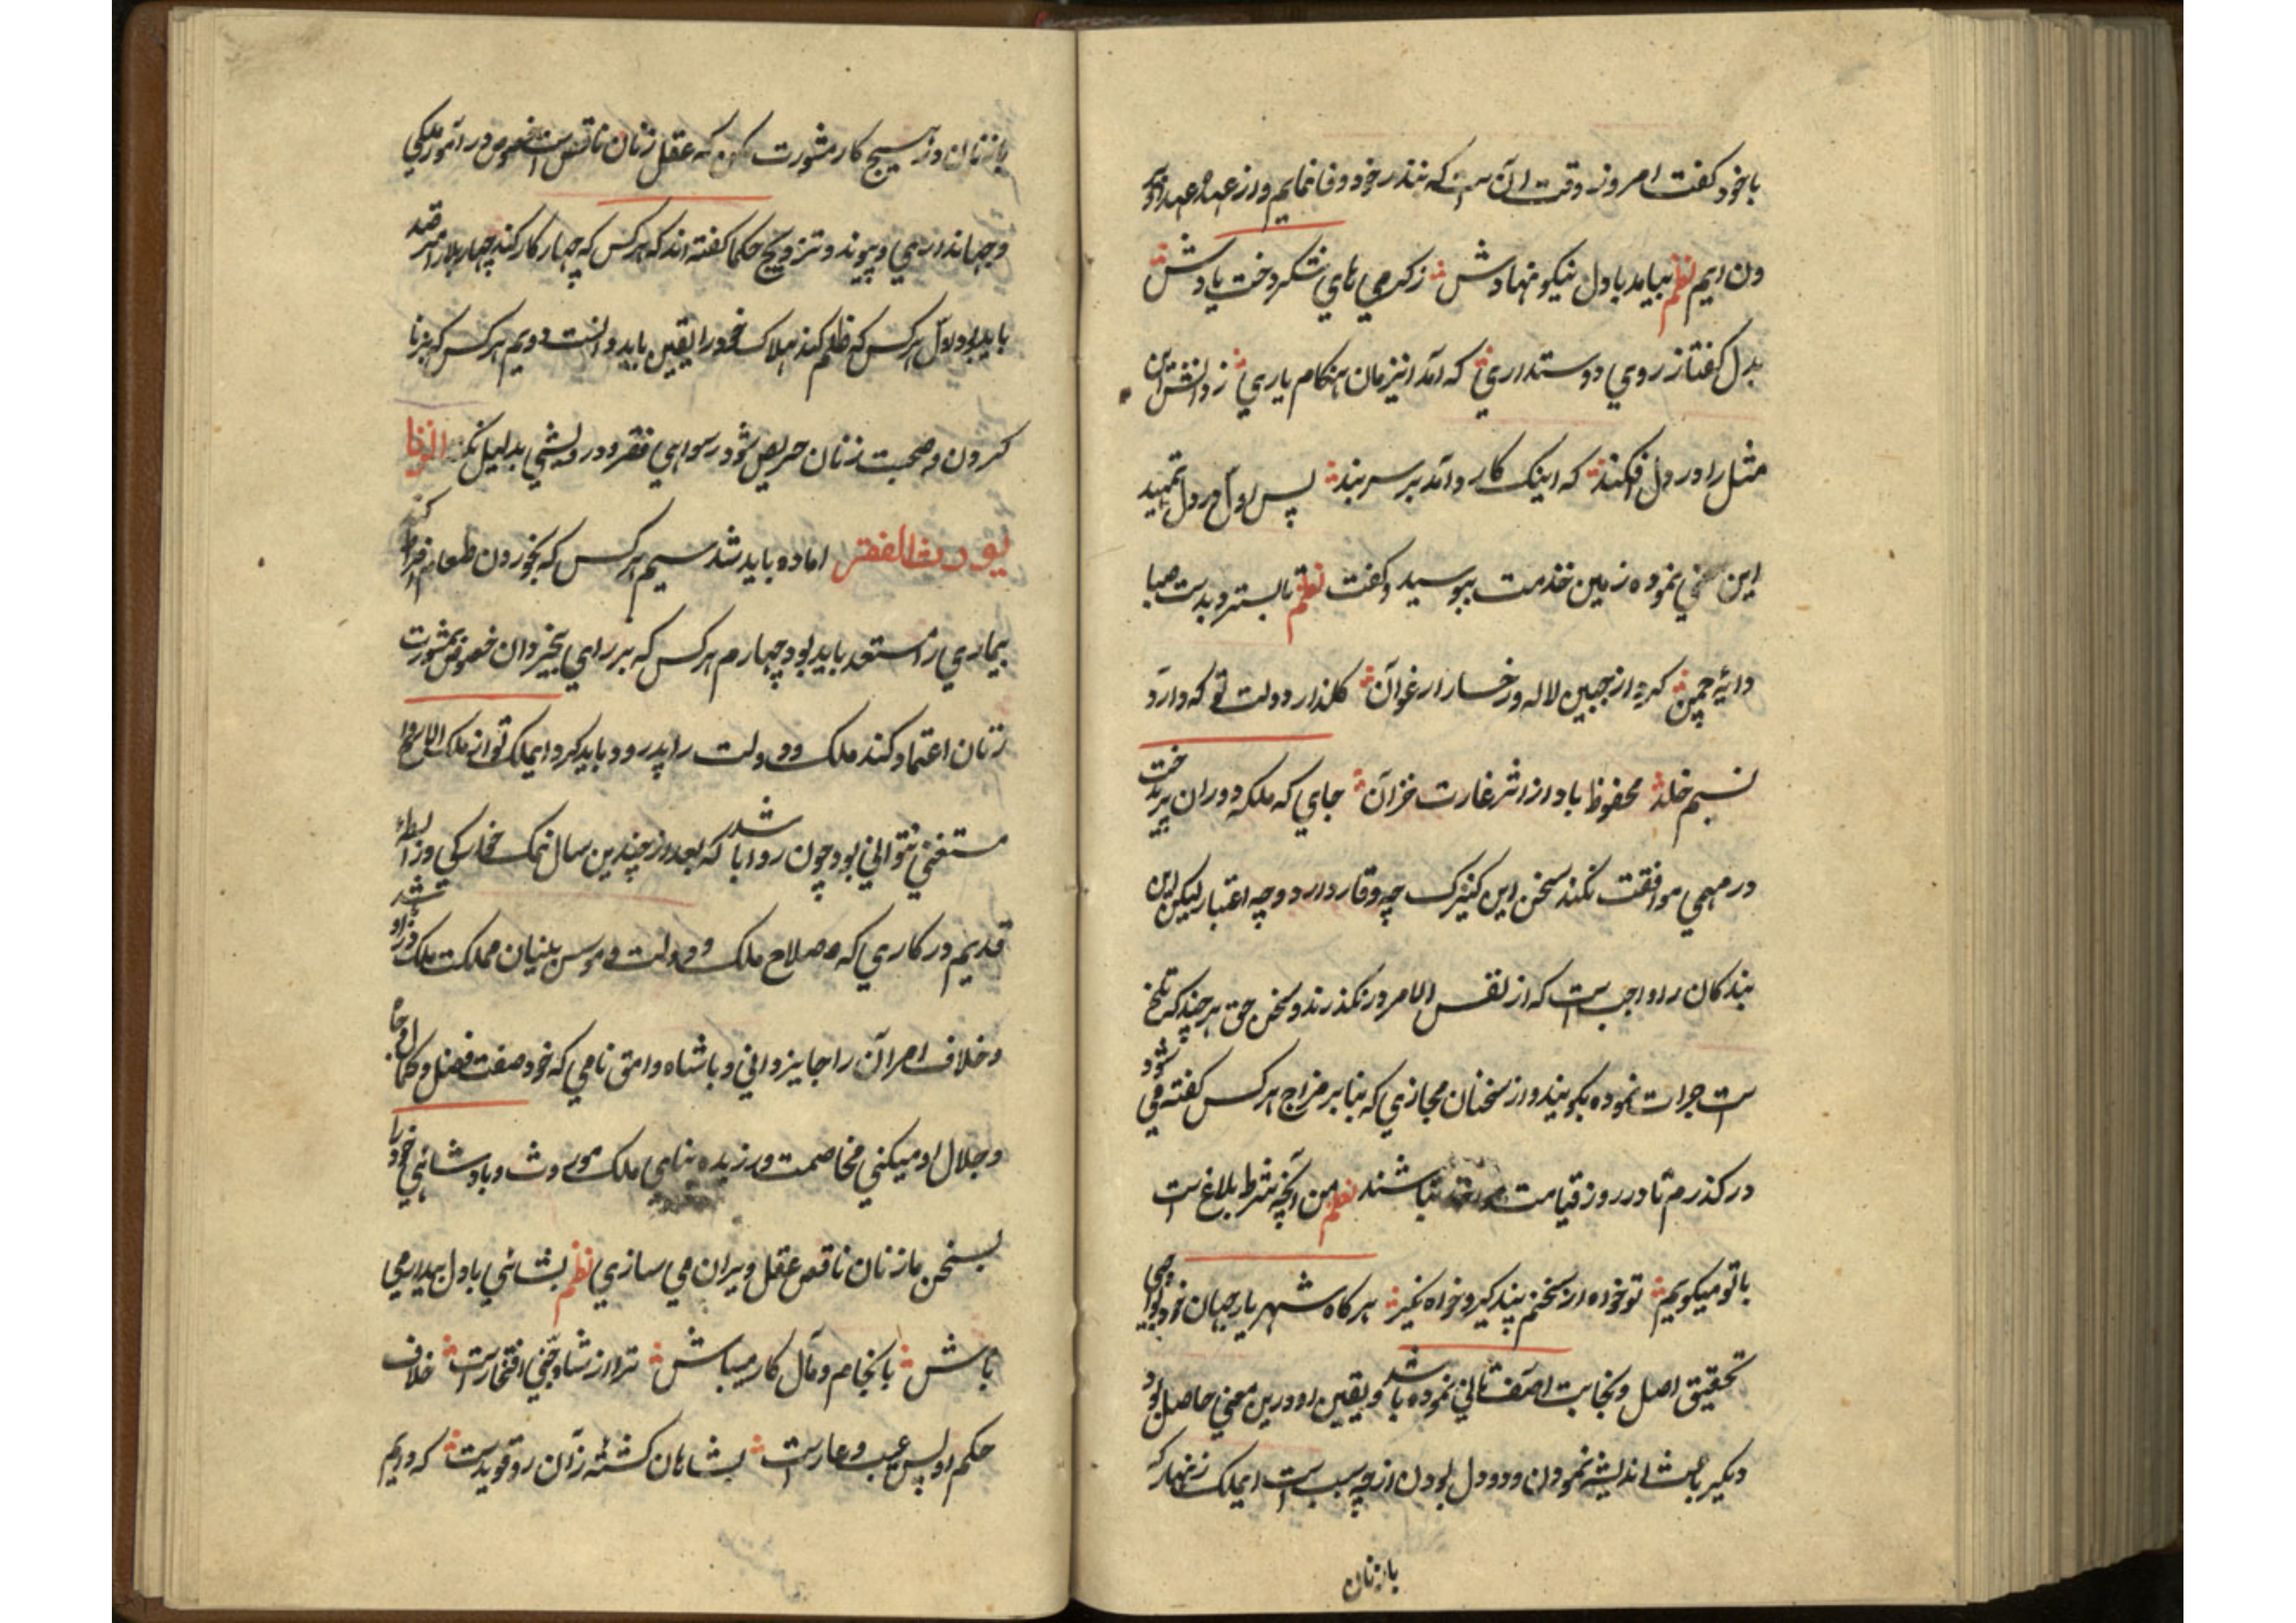 با خود کفت امروز وقت آن است که بنذر خود وفا نمایم و از عهده عهد او بر
ون ایم نظم بیامد با دل نیکو نهادش زکرمی های شکر دخت یادش
بدل کفتا ز روی دوستداری که آمد انیزمان هنکام یاری ز دانش این
مثل را در دل افکند که اینک کار دآمد بر سر بند پس اول در دل تمهید
این سخن نموده زمین خدمت ببوسید و کفت نظم تا بسترد بدست صبا
دایهٔ چمن کرد از جبین لاله و رخسار ارغوآن کلذار دولت تو که دارد
نسیم خلد محفوظ باد از اثر غارت خزآن جای که ملکه دوران پریدخت
در مهمی موافقت نکند سخن این کنیزک چه وقار دارد و چه اعتبار لیکن این
بندکان را واجب است که از نفس الامر در نکذرند و سخن حق هر چند که تلخ
است جرات نموده بکویند و از سخنان مجازی که بنا بر مزاج هر کس کفته می شود
در کذرم تا در روز قیامت نباشند نظم من آنچه شرط بلاغ است
با تو میکویم تو خواه از سخنم پند کیر و خواه نکیر هر کاه شهریار جهان خود
تحقیق اصل و نجابت اصف ثانی نموده باشد و یقین او درین معنی حاصل بود
دیکر باعث اندیشه نمودن و دو دل بودن از چه سبب است ایملک زنهار که
بازنان
بازنان در هیچ کار مشورت مکن که عقل زنان ناقص است خصوص در امور ملکی
و جهانداری و پیوند و تزویج حکما کفته اند که هر کس که چهار کار کند چهار بلا را مترصد
باید بود اول هر کس که ظلم کند هلاک خود را یقین باید دانست دویم هر کس که بزنا
کردن و صحبت زنان حریص شود رسوایی فقر و درویشی بدلیل نکته الزنا
یورث الفقر اماده باید شد سیم هر کس که بخوردن طعام افراط کند
بیماری را مستعد باید بود چهارم هر کس که بر رای بیخردان خصوص بمشورت
زنان اعتماد کند ملک و دولت را پدرود باید کرد ایملک تو از ملک
مستغنی نتوانی بود چون روا باشد که بعد از چندین سال نمک خوارکی وزرا
قدیم در کاری که صلاح ملک و دولت و موسس بنیان مملکت ملک
و خلاف امر آن را جایز دانی و با شاه وامق نامی که خود صفت فضل و کمال و جاه
و جلال او میکنی مخاصمت ورزیده بنای ملک موروث و بادشاهی خود را
بسخن ما زنان ناقص عقل ویران می سازی نظم بشاهی با دل بیدار می
باش بانجام و مآل کار میباش ترا از شاه جنی افتخار است خلاف
حکم او بس عیب و عار است بشاهان کشته زآن رو تو بدست که داریم